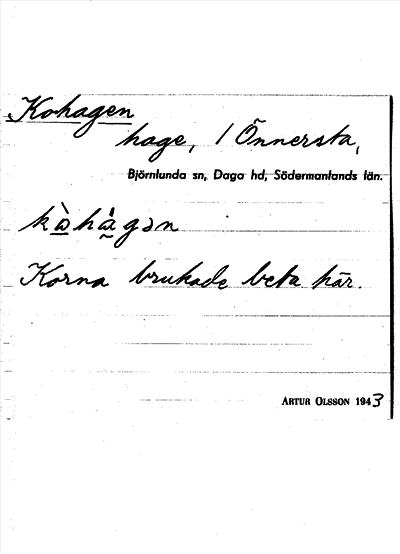 Kohagen
hage, / Önnersta,
Björnlunda sn, Daga hd, Södermanlands län.
kòhàgən
Korna brukade beta här.
ARTUR OLSSON 1943